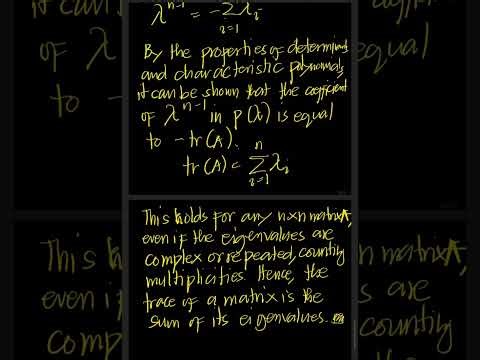 λ^{n-1} = -∑_{i=1} λ_i
By the properties of determinants
and characteristic polynomials,
it can be shown that the coefficient
of λ^{n-1} in p(λ) is equal
to -tr(A).
tr(A) = ∑_{i=1}^{n} λ_i
This holds for any n×n matrix A,
even if the eigenvalues are
complex or repeated, counting
multiplicities. Hence, the
trace of a matrix is the
sum of its eigenvalues.